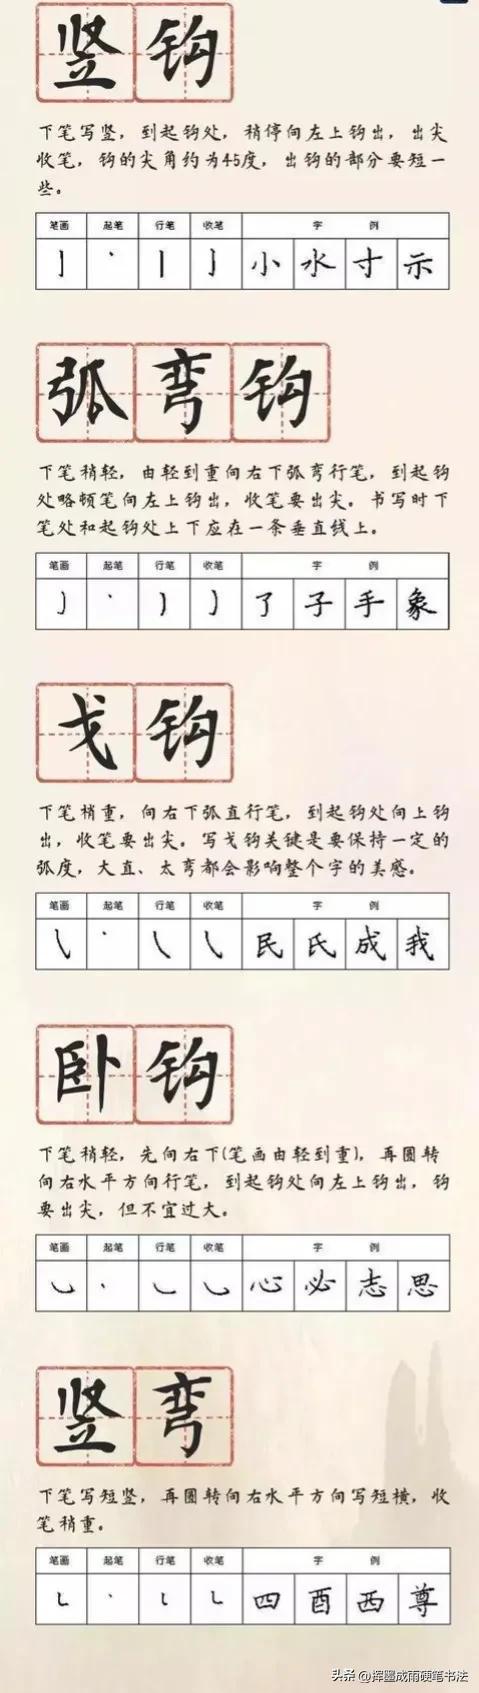 竖钩
下笔写竖，到起钩处，稍停向左上钩出，出尖
收笔，钩的尖角约为45度，出钩的部分要短一
些。
笔画 起笔 行笔 收笔 字 例
亅 小 水 寸 示
弧弯钩
下笔稍轻，由轻到重向右下弧弯行笔，到起钩
处略顿笔向左上钩出，收笔要出尖。书写时下
笔处和起钩处上下应在一条垂直线上。
笔画 起笔 行笔 收笔 字 例
了 子 手 象
戈钩
下笔稍重，向右下弧直行笔，到起钩处向上钩
出，收笔要出尖。写戈钩关键是要保持一定的
弧度，大直、太弯都会影响整个字的美感。
笔画 起笔 行笔 收笔 字 例
民 氏 成 我
卧钩
下笔稍轻，先向右下(笔画由轻到重)，再圆转
向右水平方向行笔，到起钩处向左上钩出，钩
要出尖，但不宜过大。
笔画 起笔 行笔 收笔 字 例
心 必 志 思
竖弯
下笔写短竖，再圆转向右水平方向写短横，收
笔稍重。
笔画 起笔 行笔 收笔 字 例
四 酉 西 尊
头条 @挥墨成雨硬笔书法